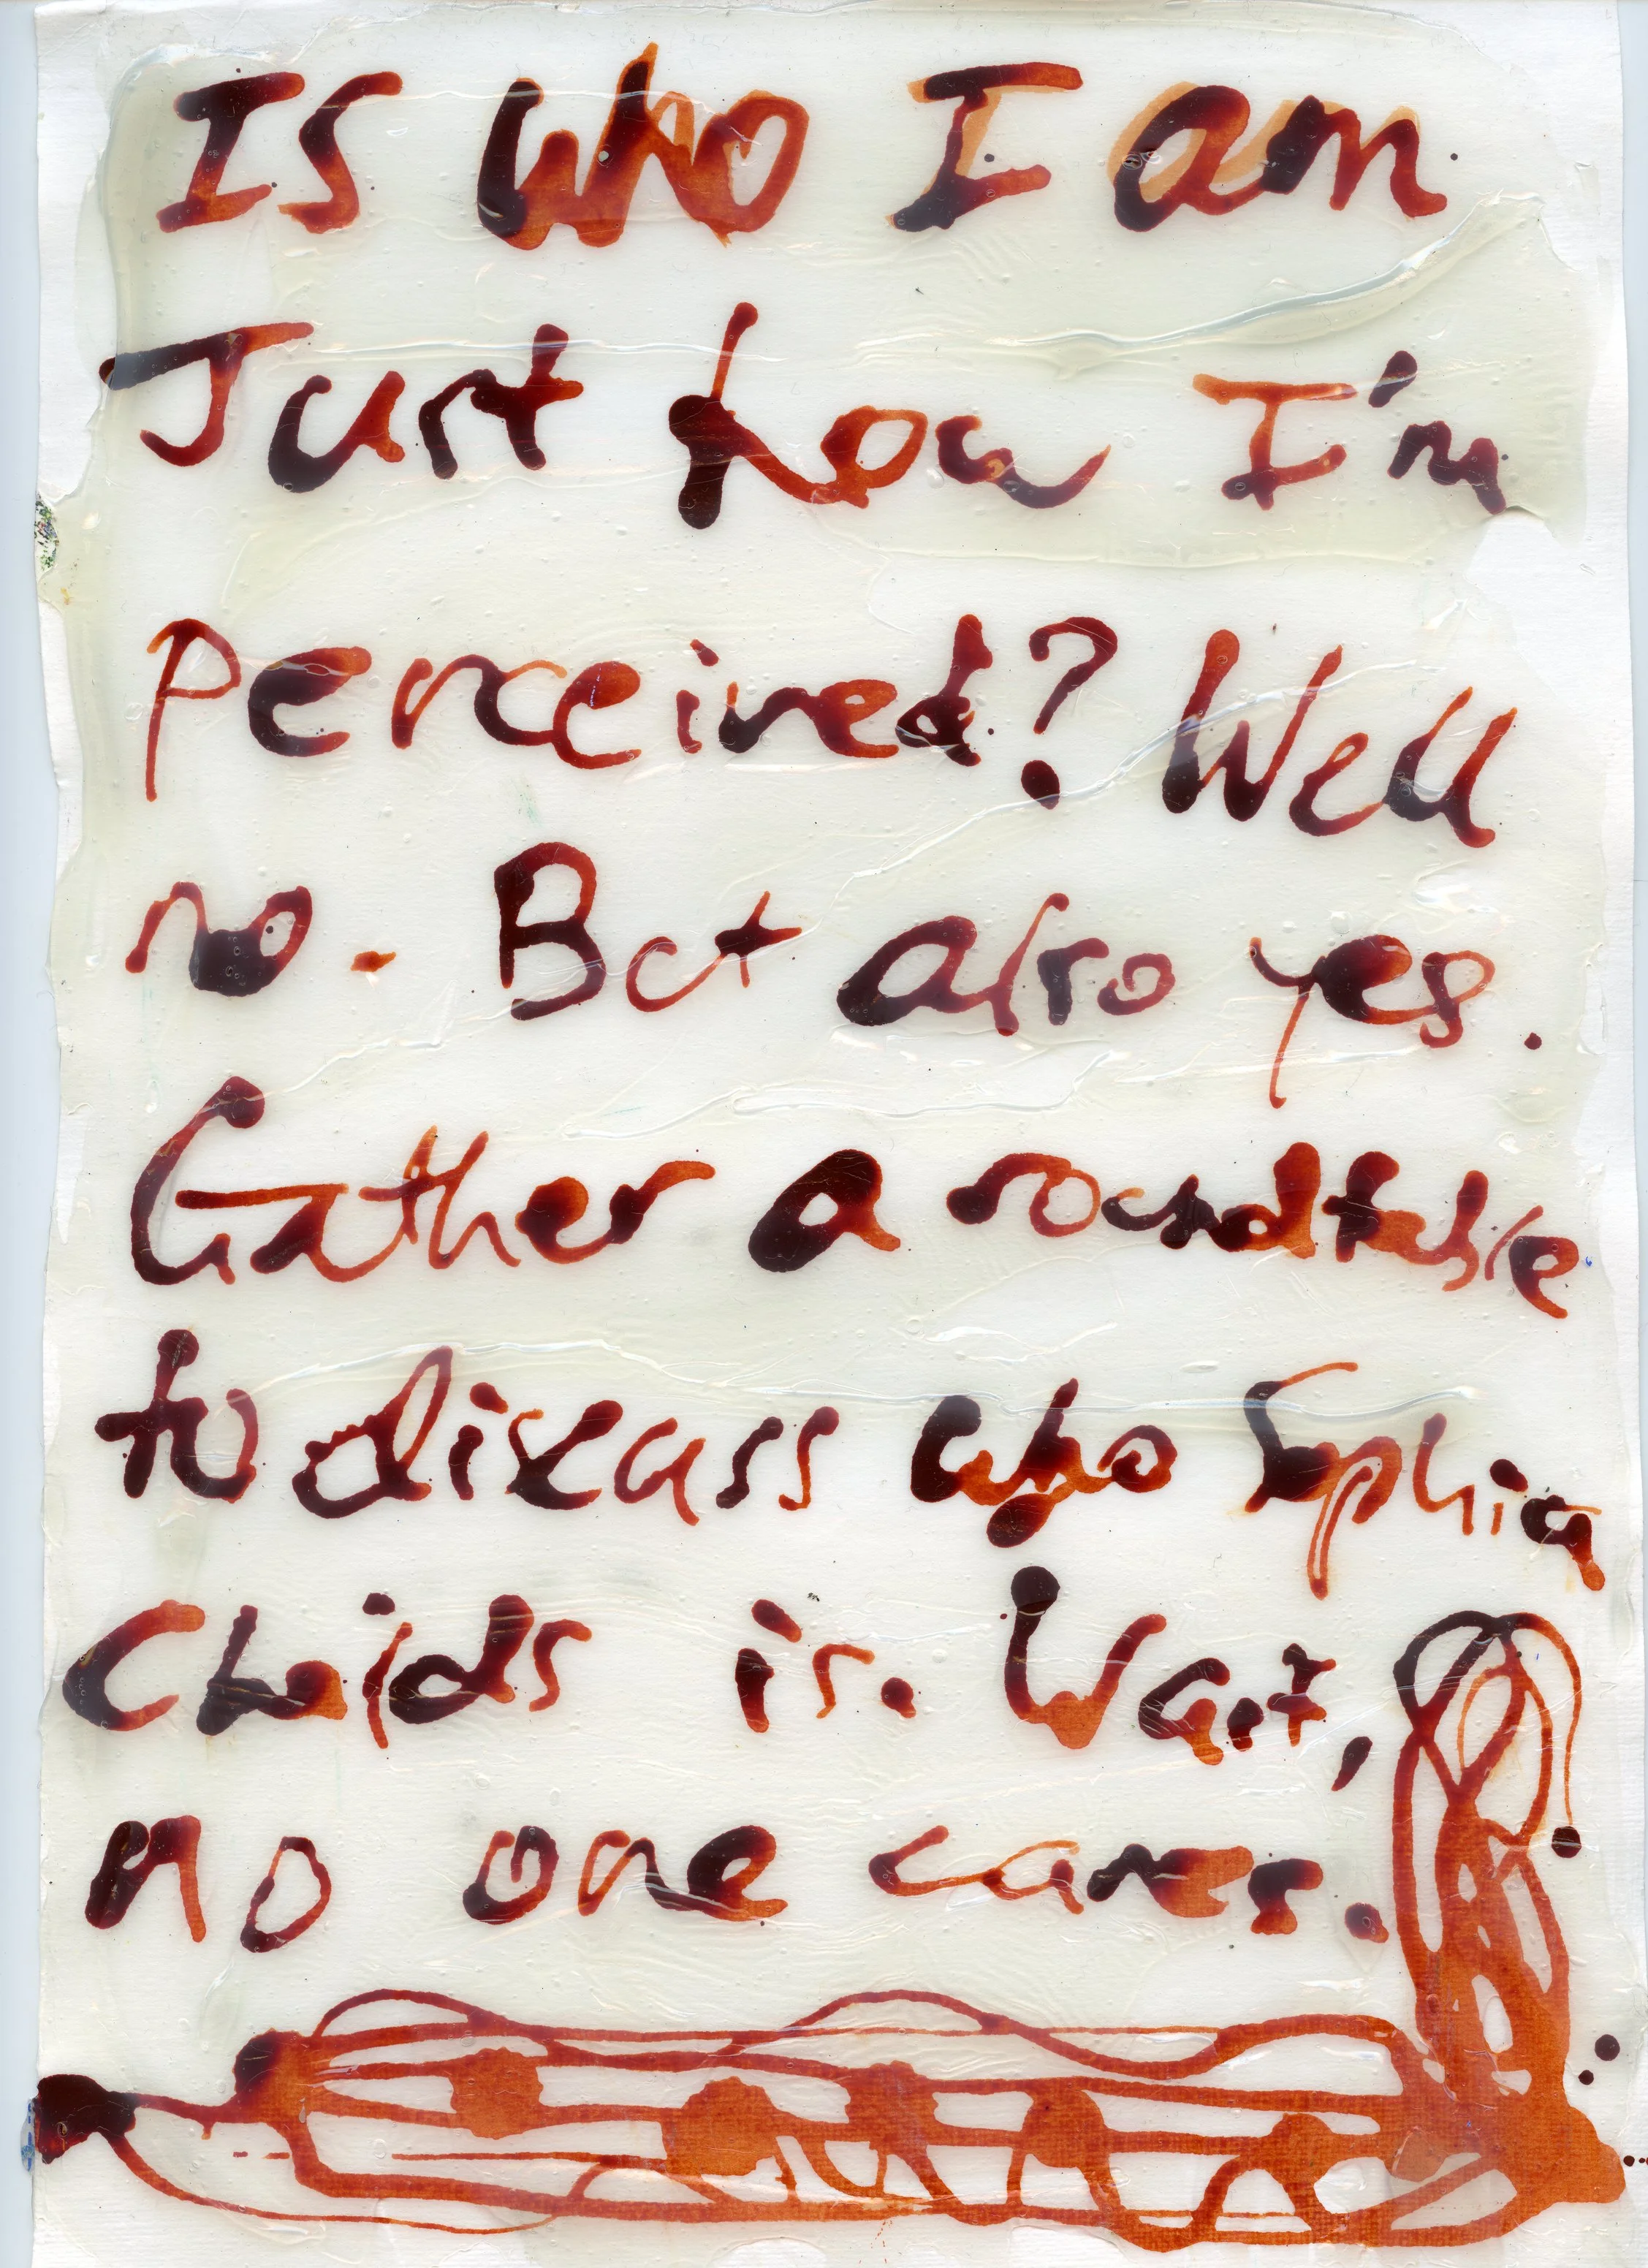 Is who I am
Just how I'm
perceived? Well
no. But also yes.
Gather a roundtable
to discuss who Sophia
is. Wait,
no one cares.